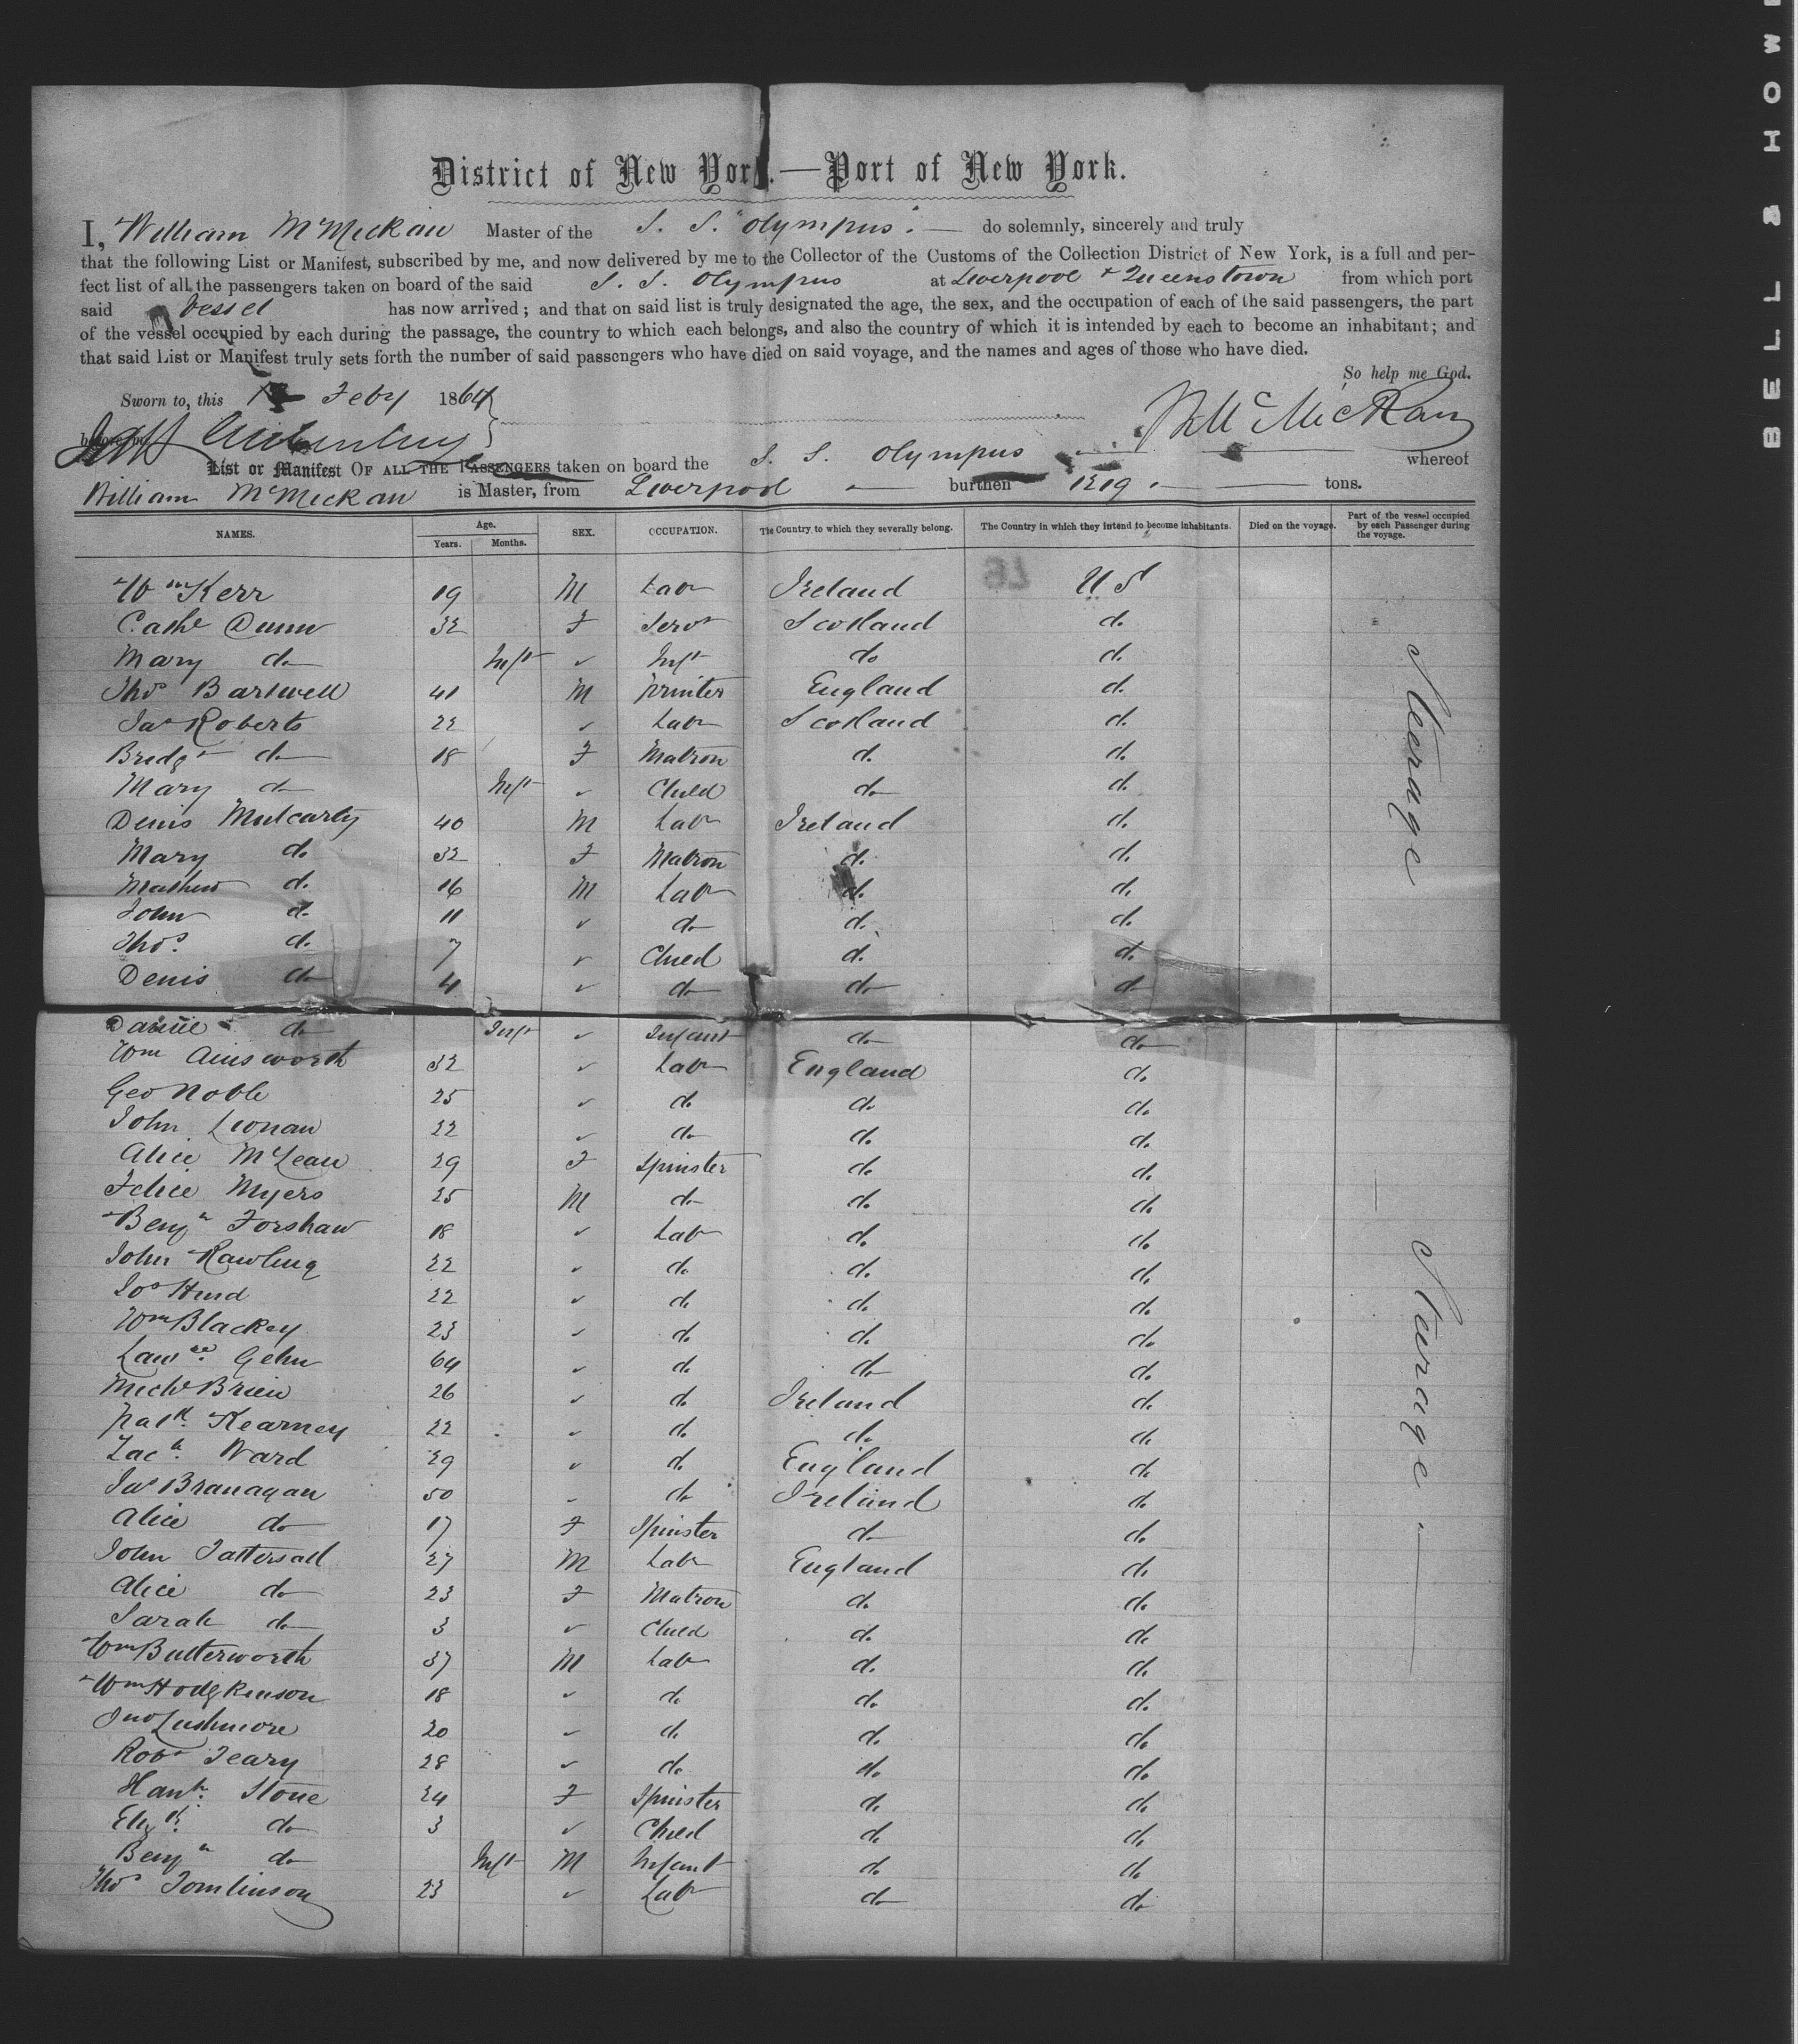 District of New York.—Port of New York.
I, William McMickan Master of the S. S. "Olympus". — do solemnly, sincerely and truly
that the following List or Manifest, subscribed by me, and now delivered by me to the Collector of the Customs of the Collection District of New York, is a full and per-
fect list of all the passengers taken on board of the said S. S. Olympus at Liverpool & Queenstown from which port
said Vessel has now arrived; and that on said list is truly designated the age, the sex, and the occupation of each of the said passengers, the part
of the vessel occupied by each during the passage, the country to which each belongs, and also the country of which it is intended by each to become an inhabitant; and
that said List or Manifest truly sets forth the number of said passengers who have died on said voyage, and the names and ages of those who have died.
So help me God.
Sworn to, this Feby 1864
Wm McMickan
List or Manifest OF ALL THE PASSENGERS taken on board the S. S. Olympus whereof
William McMickan is Master, from Liverpool — burthen 1219 — tons.
NAMES. Age. Years. Months. SEX. OCCUPATION. The Country to which they severally belong. The Country in which they intend to become inhabitants. Died on the voyage. Part of the vessel occupied by each Passenger during the voyage.
Wm Kerr 19 M Labr Ireland U S
Cathe Dunn 32 F Servt Scotland do
Mary do Inft ✓ Inft do do
Thos Bartwell 41 M printer England do
Jas Roberts 22 ✓ Labr Scotland do
Bridgt do 18 F Matron do do
Mary do Inft ✓ Child do do
Denis Mulcarty 40 M Labr Ireland do
Mary do 32 F Matron do do
Mathew do 16 M Labr do do
John do 11 ✓ do do do
Thos. do 7 ✓ Child do do
Denis do 4 ✓ do do do
do Inft ✓ Infant do do
Wm Ainsworth 32 ✓ Labr England do
Geo Noble 25 ✓ do do do
John Leonan 22 ✓ do do do
Alice McLean 29 F Spinster do do
Felice Myers 25 M do do do
Benjn Forshaw 18 ✓ Labr do do
John Rawling 22 ✓ do do do
Jos Hind 22 ✓ do do do
Wm Blackey 23 ✓ do do do
Lawce. Gehn 64 ✓ do do do
Michl Brien 26 ✓ do Ireland do
Patk. Kearney 22 ✓ do do do
Zach. Ward 29 ✓ do England do
Jas Branagan 50 ✓ do Ireland do
Alice do 17 F Spinster do do
John Tattersall 27 M Labr England do
Alice do 23 F Matron do do
Sarah do 3 ✓ Child do do
Wm Butterworth 37 M Labr do do
Wm Hodgkinson 18 ✓ do do do
Jno Lushmore 20 ✓ do do do
Robt Teary 28 ✓ do do do
Hanh. Stone 24 F Spinster do do
Elizth. do 3 ✓ Child do do
Benjn do Inft M Infant do do
Thos Tomlinson 23 ✓ Labr do do
Steerage
— Steerage. —
BELL & HOWE